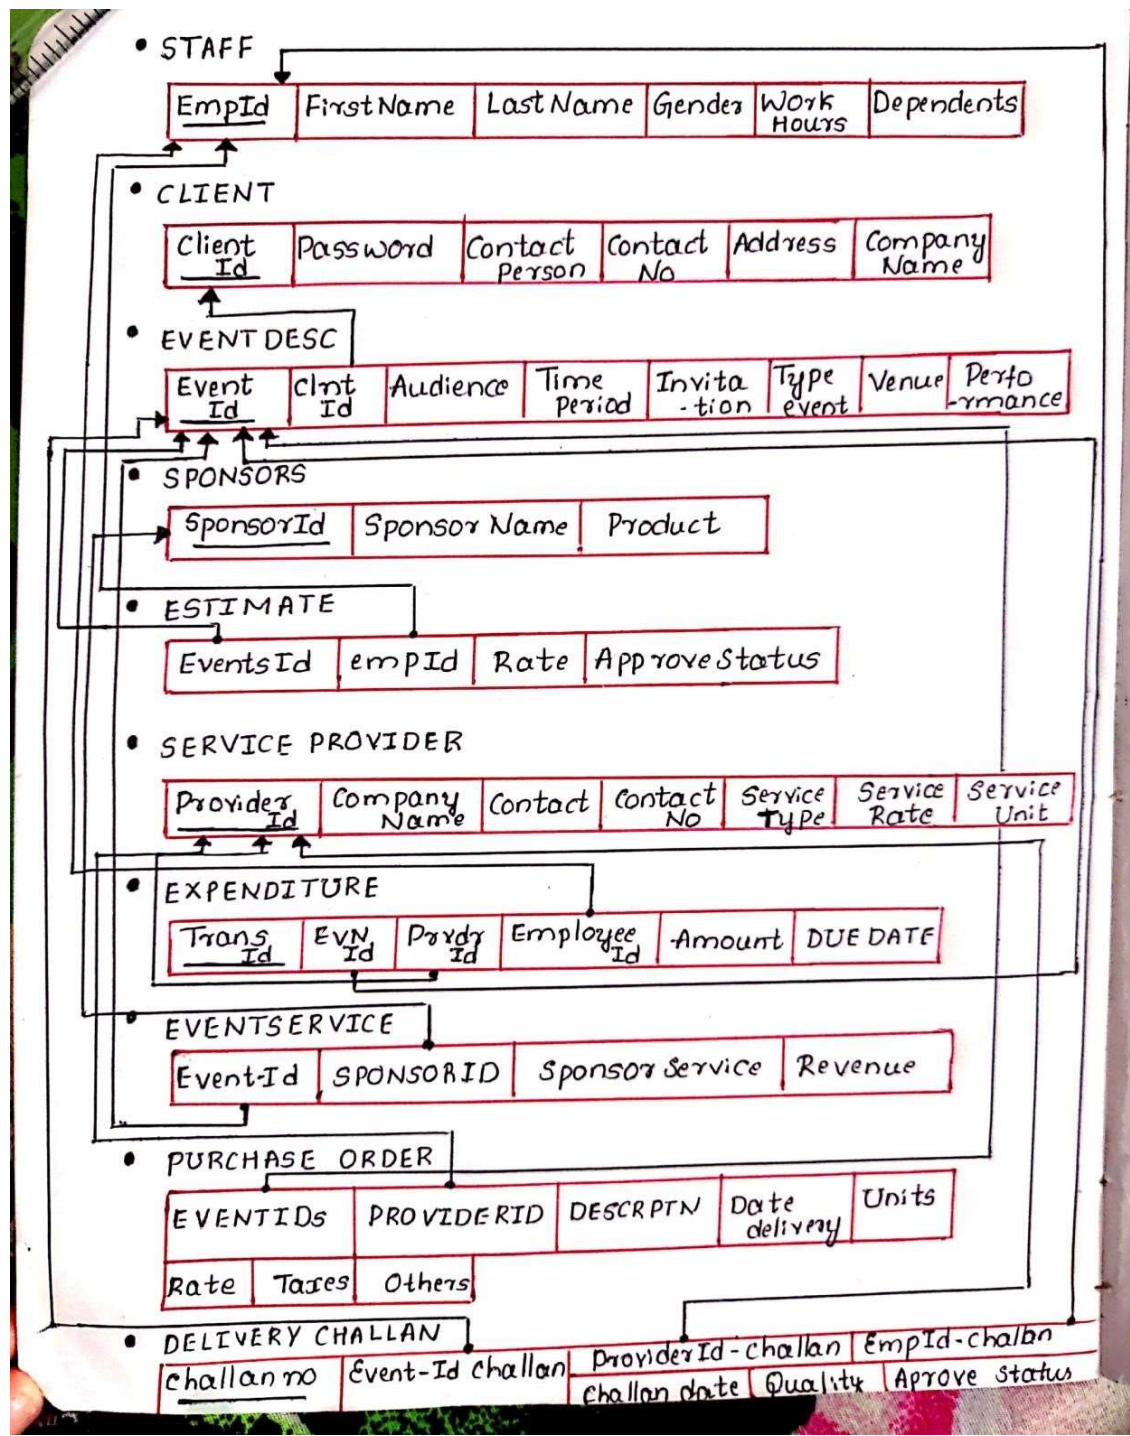 • STAFF
EmpId FirstName Last Name Gender Work Dependents
Hours
• CLIENT
Client Password Contact Contact Address Company
Id Person No Name
• EVENT DESC
Event Clnt Audience Time Invita Type Venue Perfo
Id Id Period -tion event -rmance
• SPONSORS
SponsorId Sponsor Name Product
• ESTIMATE
Events Id empId Rate Approve Status
• SERVICE PROVIDER
Provider Company Contact Contact Service Service Service
Id Name No Type Rate Unit
• EXPENDITURE
Trans EVN Prvdr Employee Amount DUE DATE
Id Id Id Id
• EVENTSERVICE
Event-Id SPONSORID Sponsor Service Revenue
• PURCHASE ORDER
EVENTIDs PROVIDERID DESCRPTN Date Units
delivery
Rate Taxes Others
• DELIVERY CHALLAN
challan no Event-Id Challan ProviderId-challan EmpId-challan
Challan date Quality Aprove Status